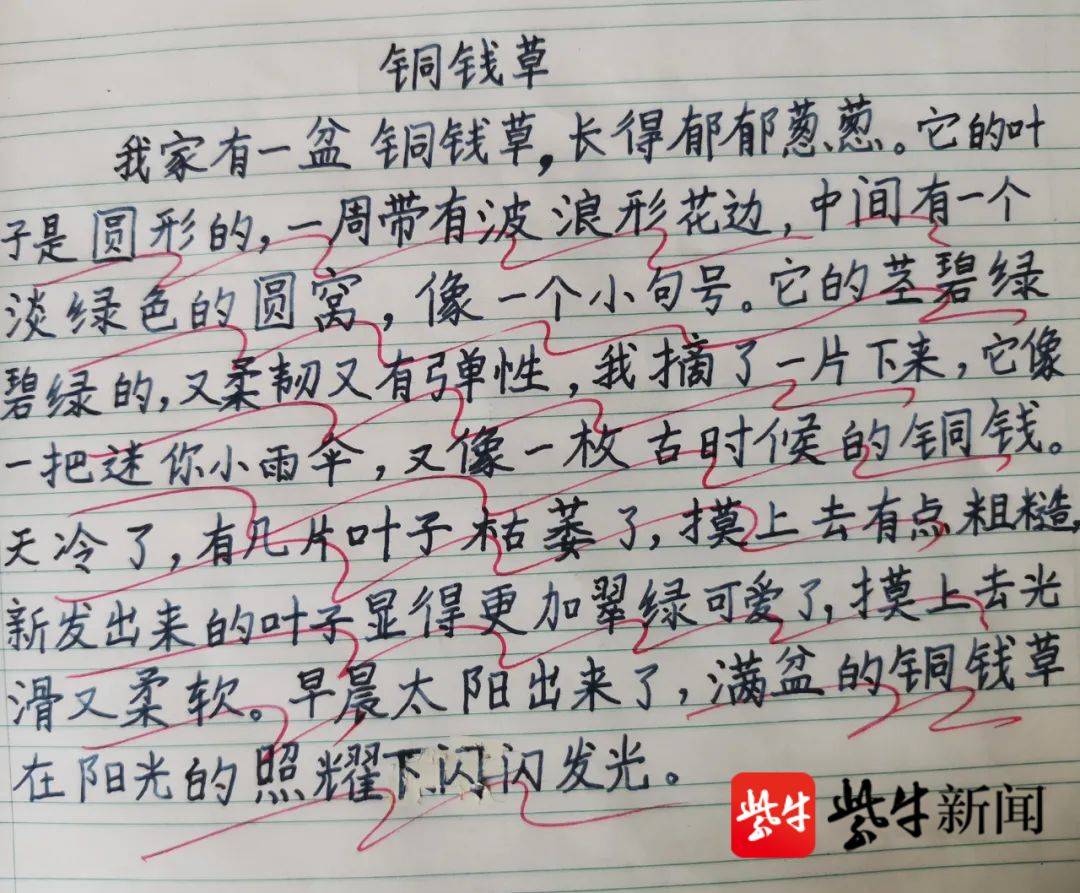 铜钱草
我家有一盆铜钱草,长得郁郁葱葱。它的叶
子是圆形的,一周带有波浪形花边,中间有一个
淡绿色的圆窝,像一个小句号。它的茎碧绿
碧绿的,又柔韧又有弹性,我摘了一片下来,它像
一把迷你小雨伞,又像一枚古时候的铜钱。
天冷了,有几片叶子枯萎了,摸上去有点粗糙,
新发出来的叶子显得更加翠绿可爱了,摸上去光
滑又柔软。早晨太阳出来了,满盆的铜钱草
在阳光的照耀下闪闪发光。
紫牛 紫牛新闻